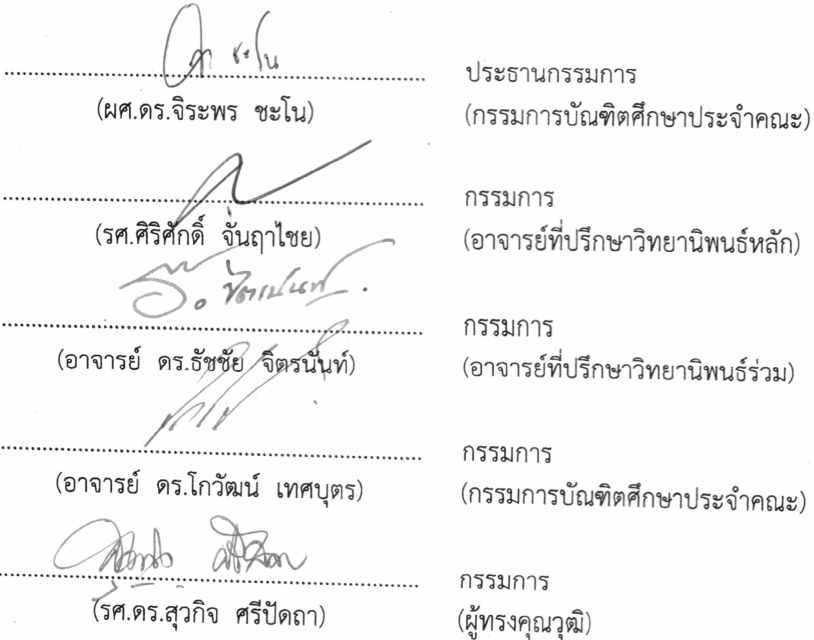 ประธานกรรมการ
(ผศ.ดร.จิระพร ชะโน) (กรรมการบัณฑิตศึกษาประจำคณะ)
กรรมการ
(รศ.ศิริศักดิ์ จั่นฤาไชย) (อาจารย์ที่ปรึกษาวิทยานิพนธ์หลัก)
กรรมการ
(อาจารย์ ดร.ธัชชัย จิตรนันท์) (อาจารย์ที่ปรึกษาวิทยานิพนธ์ร่วม)
กรรมการ
(อาจารย์ ดร.โกวัฒน์ เทศบุตร) (กรรมการบัณฑิตศึกษาประจำคณะ)
กรรมการ
(รศ.ดร.สุวกิจ ศรีปัดถา) (ผู้ทรงคุณวุฒิ)